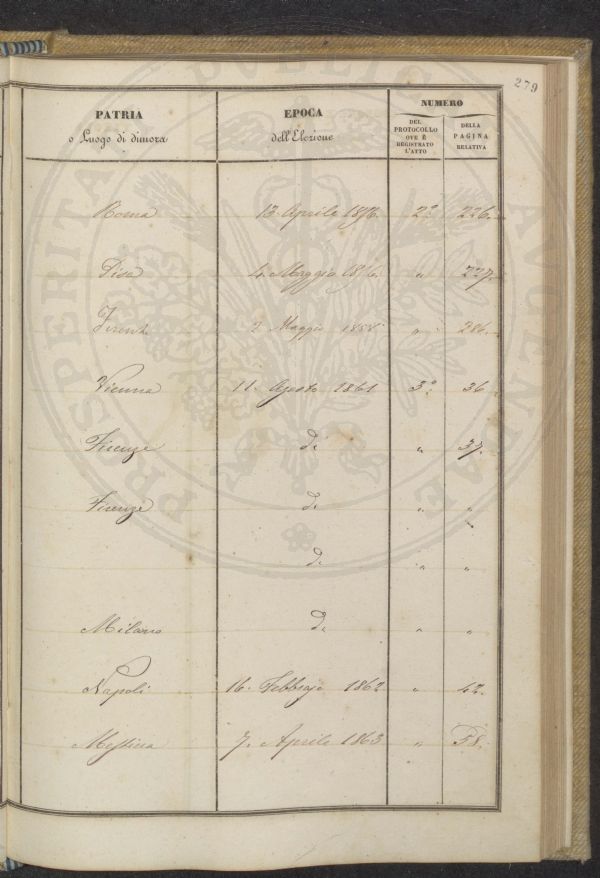 279
PATRIA
o Luogo di dimora
EPOCA
dell'Elezione
NUMERO
DEL
PROTOCOLLO
OVE È
REGISTRATO
L'ATTO
DELLA
PAGINA
RELATIVA
Roma 13. Aprile 2° 226.
Pisa 4. Maggio " 227.
Firenze 2 Maggio 1858 " 286.
Vienna 11. Agosto 1861 3° 36
Firenze d: " 37.
Firenze d: " "
d: " "
Milano d: " "
Napoli 16. Febbrajo 1862 " 42.
Messina 7. Aprile 1863 " 58.
PROSPERITATI PUBLICAE AUGENDAE